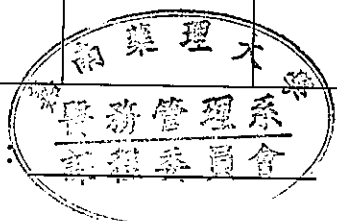 嘉南藥理大學
醫務管理系
課程委員會